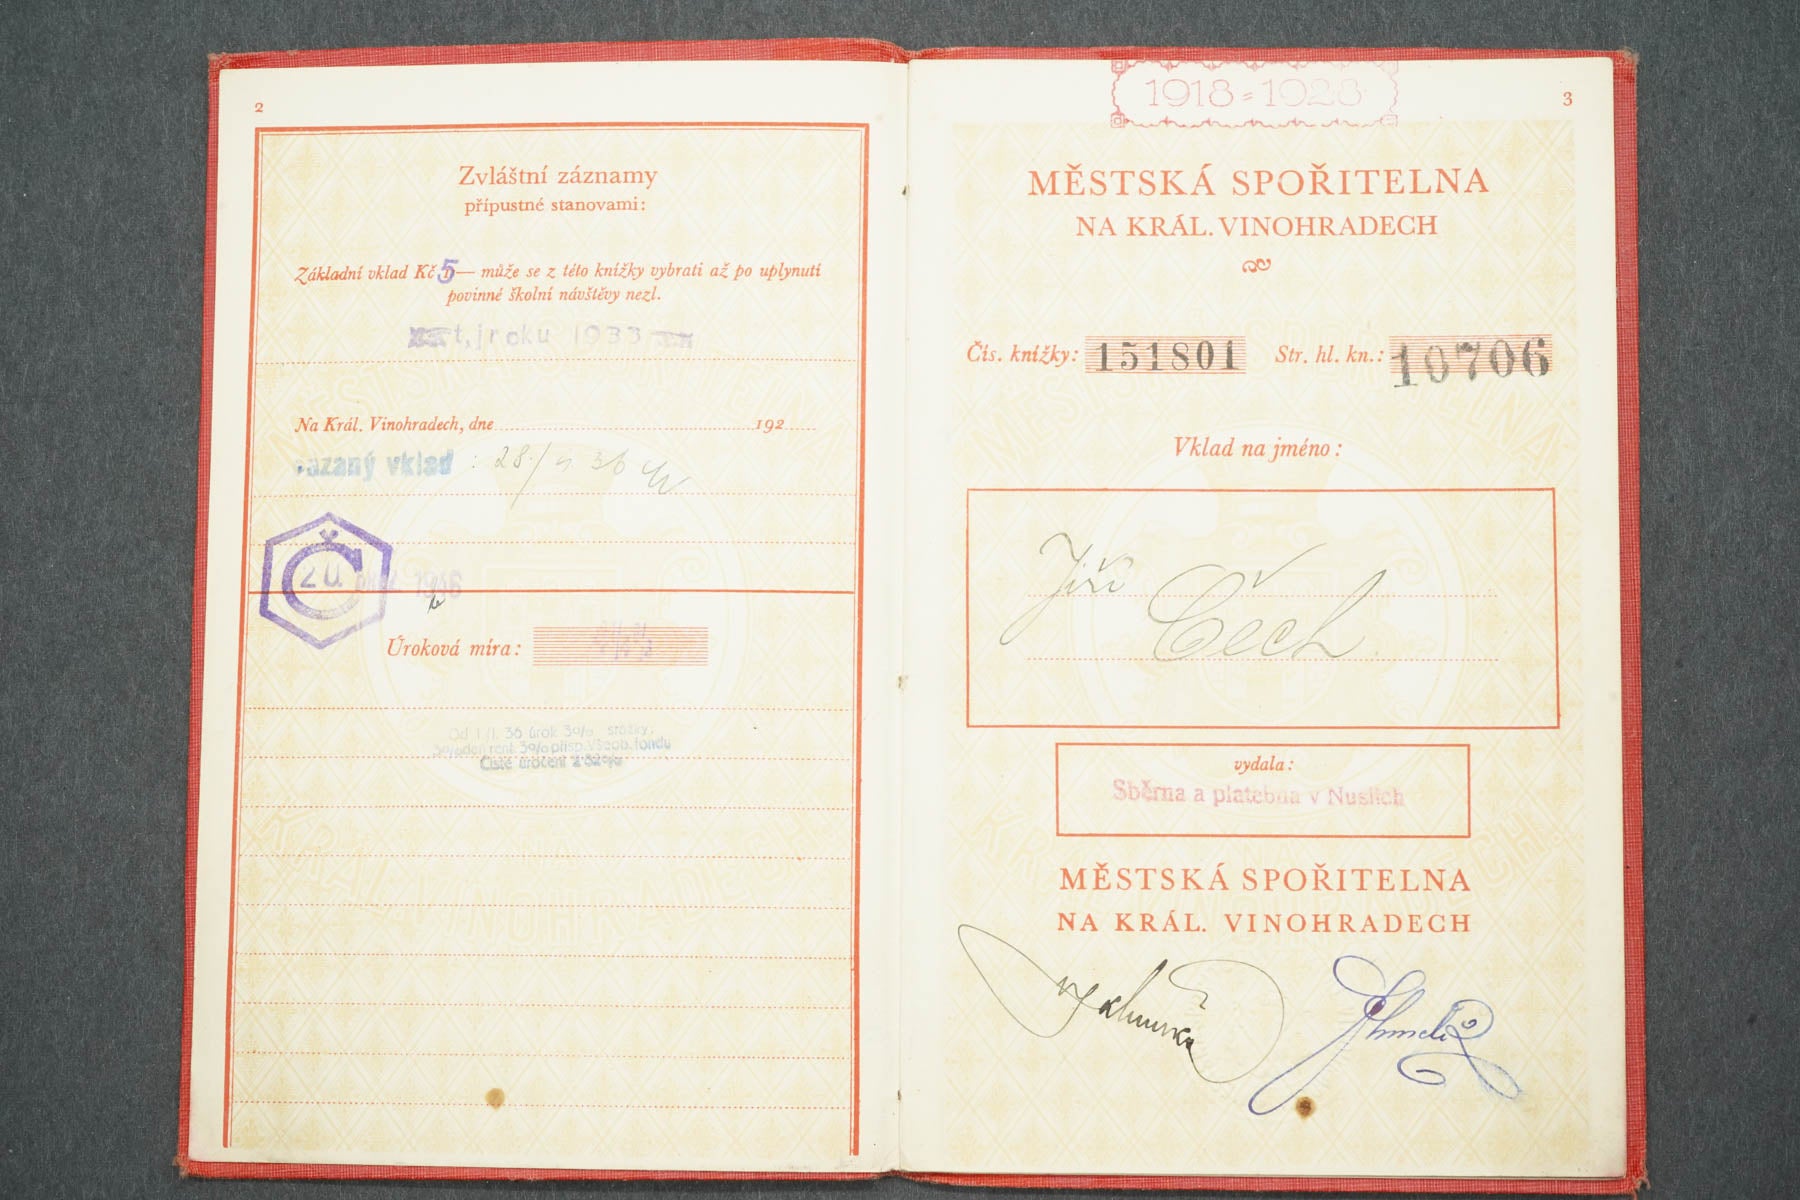 2
Zvláštní záznamy
přípustné stanovami:
Základní vklad Kč 5— může se z této knížky vybrati až po uplynutí
povinné školní návštěvy nezl.
t,j roku 1933
Na Král. Vinohradech, dne 192
vázaný vklad : 28./ 36
Č
Úroková míra:
Od 1/I. 36 úrok 3% srážky:
daň rent. 3% přísp. všeob. fondu
Čisté úročení 2·82%
1918=1928
3
MĚSTSKÁ SPOŘITELNA
NA KRÁL. VINOHRADECH
Čís. knížky: 151801 Str. hl. kn.: 10706
Vklad na jméno:
Jiří
Čech
vydala:
Sběrna a platebna v Nuslích
MĚSTSKÁ SPOŘITELNA
NA KRÁL. VINOHRADECH